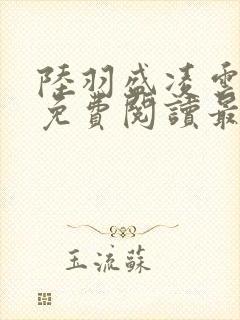 陸羽盛凌雲
免費閱讀最
玉流蘇